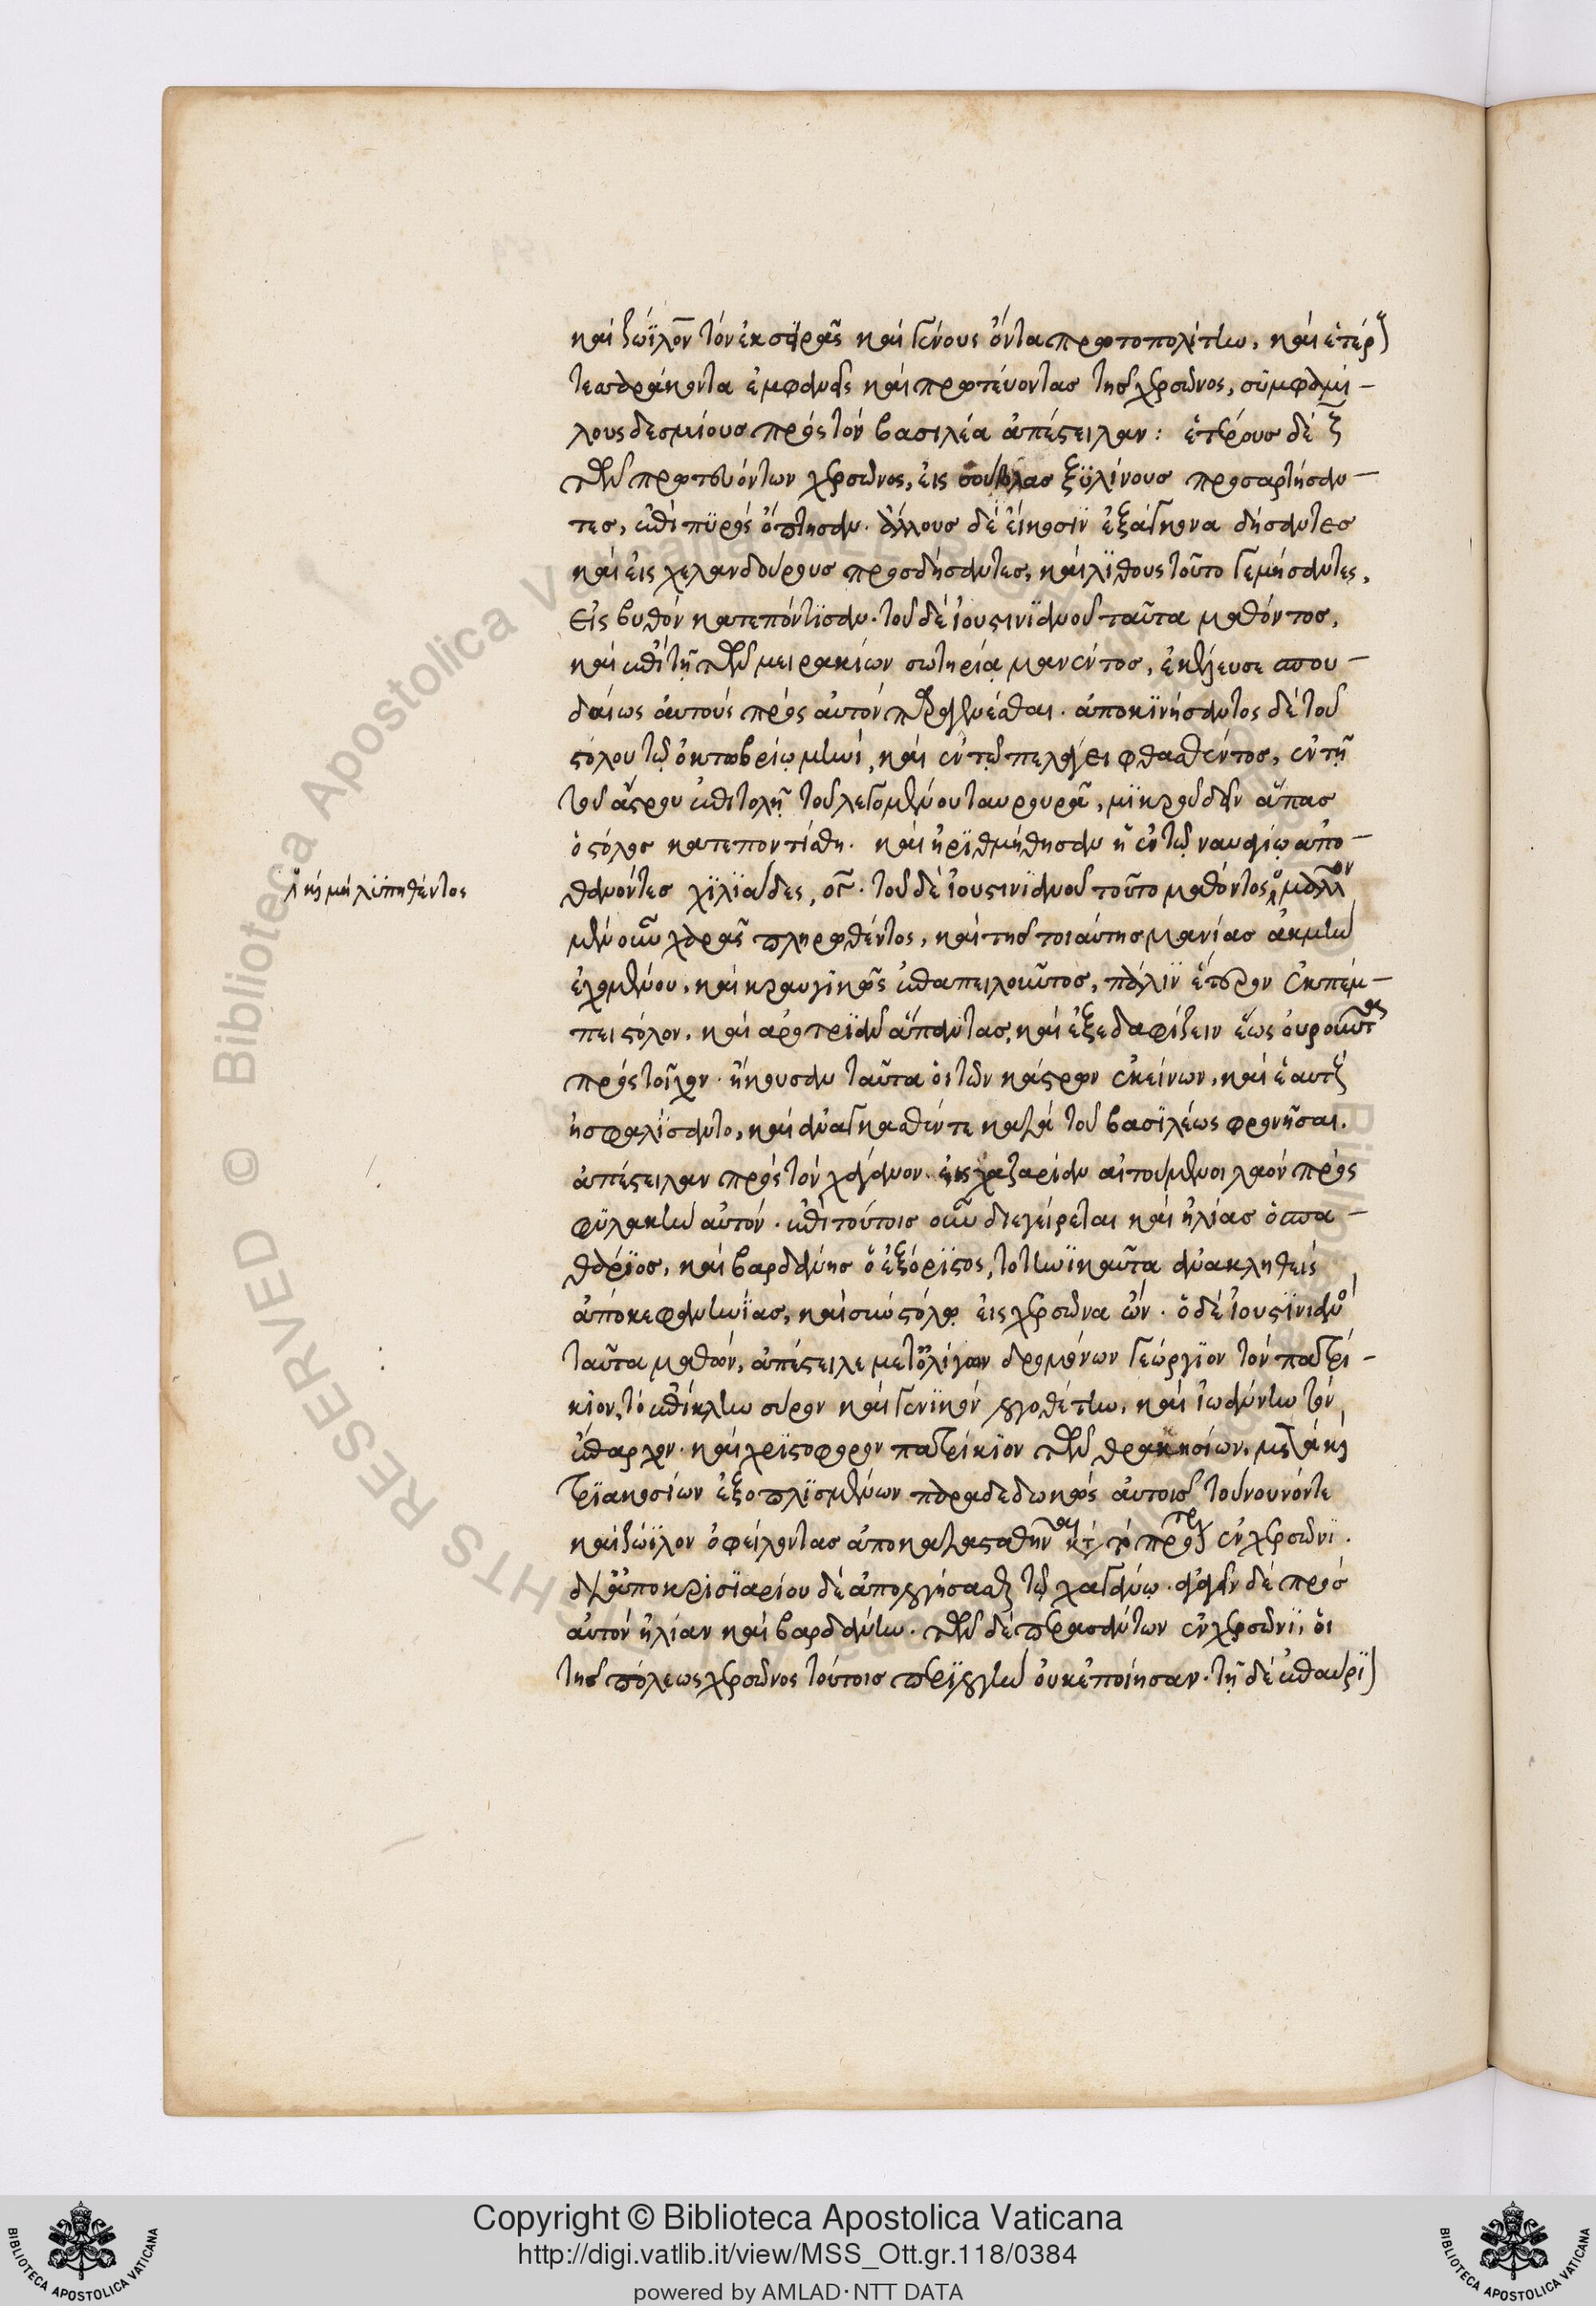 καὶ ζώϊλον τὸν ἐκ σειρᾶς καὶ γένους ὄντα πρωτοπολίτην, καὶ ἑτέρους
τεσσαράκοντα ἐμφανεῖς καὶ πρωτεύοντας τῆς χερσῶνος, σὺμ φαμι-
λους δεσμίους πρὸς τὸν βασιλέα ἀπέστειλαν: ἑτέρους δὲ ζ
τῶν πρωτευόντων χερσῶνος, εἰς σούβλας ξϋλίνους προσαρτήσαν-
τες, ἐπὶ πϋρὸς ὤπτησαν. ἄλλους δὲ εἴκοσϊν ἐξάγκονα δήσαντες
καὶ εἰς χελανδούρους προσδήσαντες, καὶ λίθους τοῦτο γεμήσαντες,
εἰς βυθὸν κατεπόντϊσαν. τοῦ δὲ ἰουστινϊανοῦ ταῦτα μαθόντος,
καὶ ἐπὶ τῇ τῶν μειρακίων σωτηρίᾳ μανέντος, ἐκέλευσε σπου-
δαίως αὐτοὺς πρὸς αὐτὸν παραγενέσθαι. ἀποκϊνήσαντος δὲ τοῦ
στόλου τῷ ὀκτωβρίῳ μηνὶ, καὶ ἐν τῷ πελάγει φθασθέντος, ἐν τῇ
τοῦ ἄστρου ἐπιτολῇ τοῦ λεγομένου ταυρουρᾶ, μϊκροῦ δεῖν ἅπας
ὁ στόλος κατεποντίσθη. καὶ ἠρϊθμήθησαν ἢ ἐν τῷ ναυαγίῳ ἀπο-
θανόντες χϊλϊάδες, ογ. τοῦ δὲ ἰουστινϊανοῦ τοῦτο μαθόντος, μᾶλλον
καὶ μὴ λϋπηθέντος
μὲν οὖν χαρᾶς πληρωθέντος, καὶ τῆς τοιαύτης μανίας ἀκμὴν
ἐχομένου, καὶ κραυγϊκῶς ἐπαπειλοῦντος, πάλϊν ἕτερον ἐκπέμ-
πει στόλον, καὶ ἀροτρϊᾶν ἅπαντας, καὶ ἐξεδαφίζειν ἕως οὐροῦντας
πρὸς τοῖχον. ἤκουσαν ταῦτα οἱ τῶν κάστρων ἐκείνων, καὶ ἑαυτοὺς
ἠσφαλίσαντο, καὶ ἀναγκασθέντε κατὰ τοῦ βασϊλέως φρονῆσαι.
ἀπέστειλαν πρὸς τὸν χαγάνον εἰς χαζαρίαν αἰτούμενοι λαὸν πρὸς
φϋλακὴν αὐτόν. ἐπὶ τούτοις οὖν διεγείρεται καὶ ἠλίας ὁ σπα-
θάρϊος, καὶ βαρδάνης ὁ ἐξόρϊστος, τὸ τηνϊκαῦτα ἀνακληθεὶς
ἀπὸ κεφαληνϊας, καὶ σὺν στόλῳ εἰς χερσῶνα ὢν. ὁ δὲ ἰουστϊνιανὸς
ταῦτα μαθὼν, ἀπέστειλε μετ' ὀλίγων δρομόνων γεώργϊον τὸν πατρί-
κιον, τὸ ἐπίκλην σύρον καὶ γενϊκὸν λογοθέτην, καὶ ἰωάννην τὸν
ἔπαρχον. καὶ χρϊστοφορον πατρίκϊον τῶν θρακησίων, μετὰ καὶ
τρϊακοσίων ἐξοπλϊσμένων παραδεδωκὼς αὐτοῖς τουνουνόντε
καὶ ζώϊλον ὀφείλοντας ἀποκαταστασθῆναι κατὰ τὸ πρότερον ἐν χερσῶνϊ.
δι' ἀποκρισϊαρίου δὲ ἀπολογήσασθαι τῷ χαγάνῳ. ἀγαγεῖν δὲ πρὸς
αὐτὸν ἠλίαν καὶ βαρδάνην. τῶν δὲ περασάντων ἐν χερσῶνϊ, οἱ
τῆς πόλεως χερσῶνος τούτοις περϊλογὴν οὐκ ἐποίησαν. τῇ δὲ ἐπαύρϊον
Copyright © Biblioteca Apostolica Vaticana
http://digi.vatlib.it/view/MSS_Ott.gr.118/0384
powered by AMLAD·NTT DATA